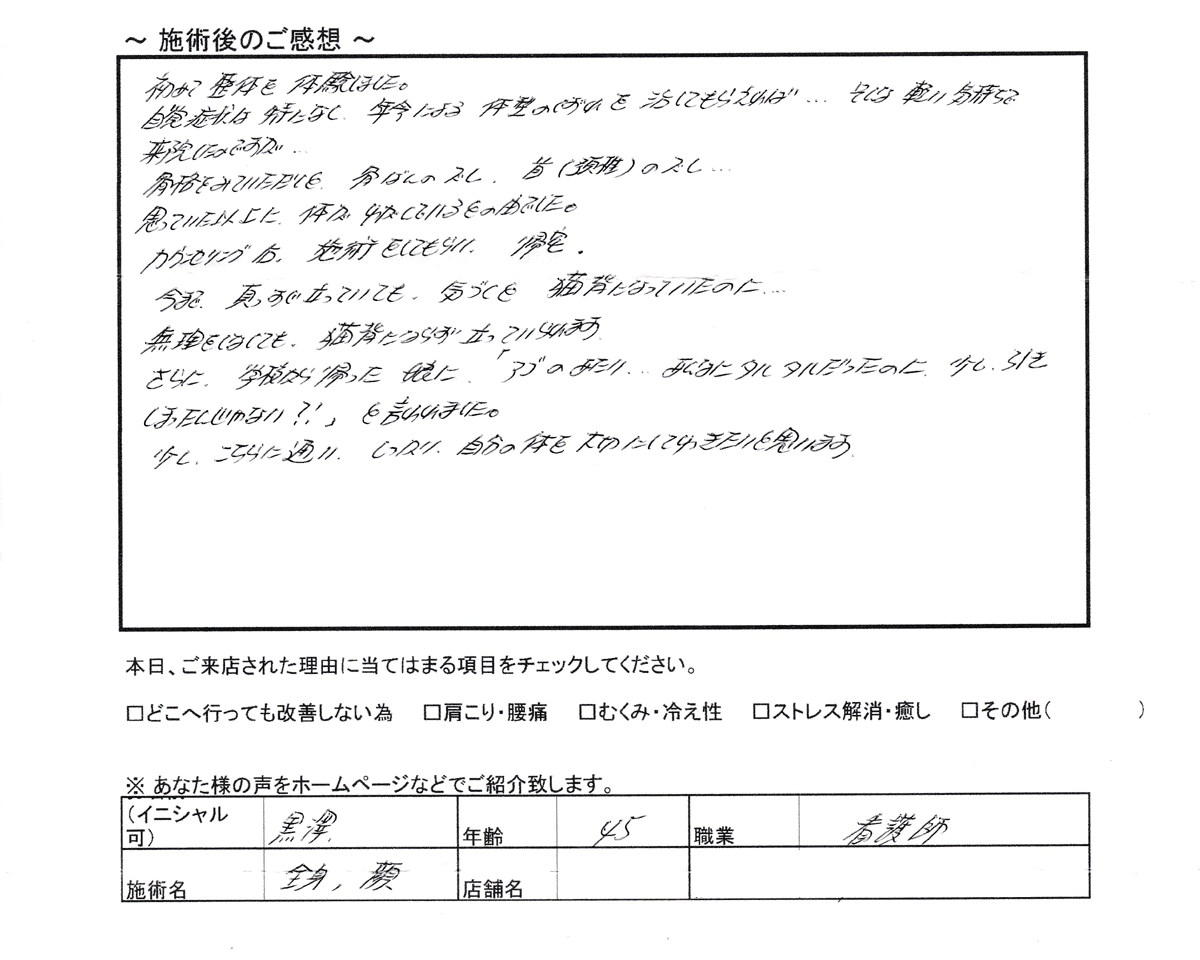 ～ 施術後のご感想 ～
初めて 整体を 体験しました。
自覚症状は 特になし、年令による 体型のくずれを 治してもらえれば… そんな 軽い 気持ちで
来院したのですが…
骨格をみていただくと、骨ばんのズレ、首(頚椎)のズレ…
思っていた以上に、体が 悲しているとの由でした。
カウンセリング后、施術をしてもらい、帰宅.
今まで、真っすぐ立っていても、気づくと 猫背になっていたのに…
無理をしなくても、猫背にならず 立っていられます
さらに、学校から帰った 娘に、「アゴのあたり… あんなにタルタルだったのに、少し、引き
しまったんじゃない?!」 と言われました。
少し、こちらに通い、しっかり、自分の体を 大切にしてゆきたいと思います
本日、ご来店された理由に当てはまる項目をチェックしてください。
□どこへ行っても改善しない為 □肩こり・腰痛 □むくみ・冷え性 □ストレス解消・癒し □その他( )
※ あなた様の声をホームページなどでご紹介致します。
(イニシャル可) 黒澤 年齢 45 職業 看護師
施術名 全身, 顔 店舗名